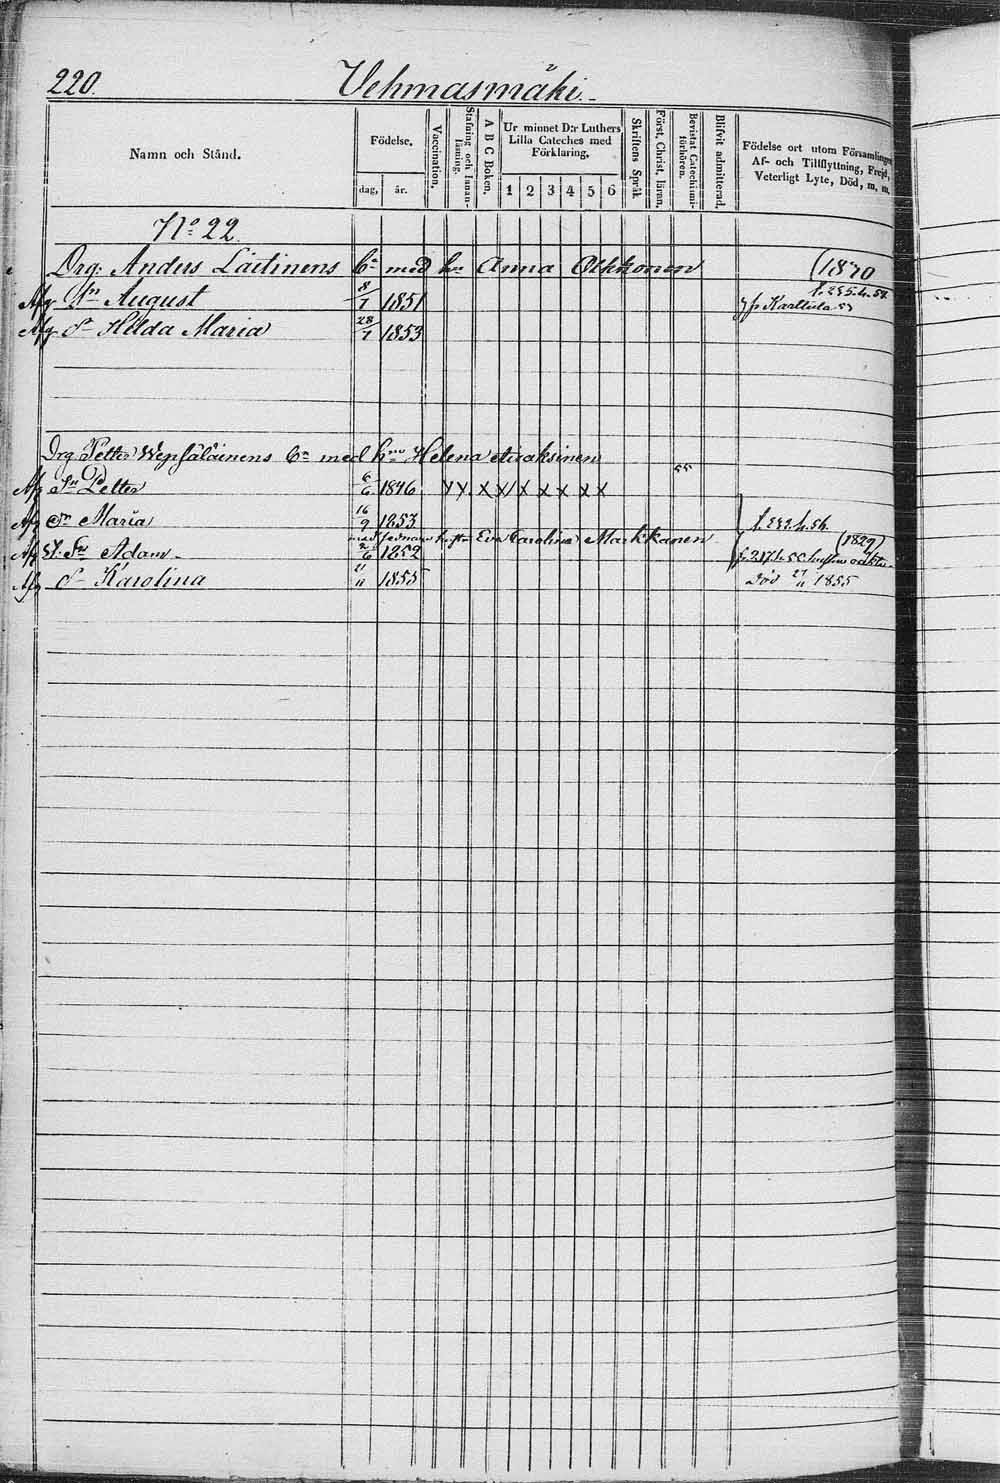 220.
Vehmasmäki.
Namn och Stånd.
Födelse.
dag,
år.
Vaccination.
Stafning och Innan-läsning.
A B C Boken.
Ur minnet D:r Luthers
Lilla Cateches med
Förklaring.
1 2 3 4 5 6
Skriftens Språk
Först. Christ. läran.
Bevistat Catechismi-förhören.
Blifvit admitterad.
Födelse ort utom Församlingen
Af- och Tillflyttning, Frejd,
Veterligt Lyte, Död, m. m.
No 22.
Drg: Anders Laitinens bn med hu Anna Olkkonen (1870
f. 235. h. 54.
Afg Sn August 8/7 1851 f Karttula 53
Afg Dr Hilda Maria 28/7 1853
Drg Petter Wepsäläinens bn med hu Helena Airaksinen
55
Afg Sn Petter 6/6 1846 x x x x x x x x
Afg Dr Maria 16/9 1853 f. 232. h. 56.
med hustru Eva Carolina Markkanen (1829)
Afg St. Sn Adam 2/6 1852 f. 217 h. 55
Afg Dr Karolina 21/11 1855 Död 27/11 1855